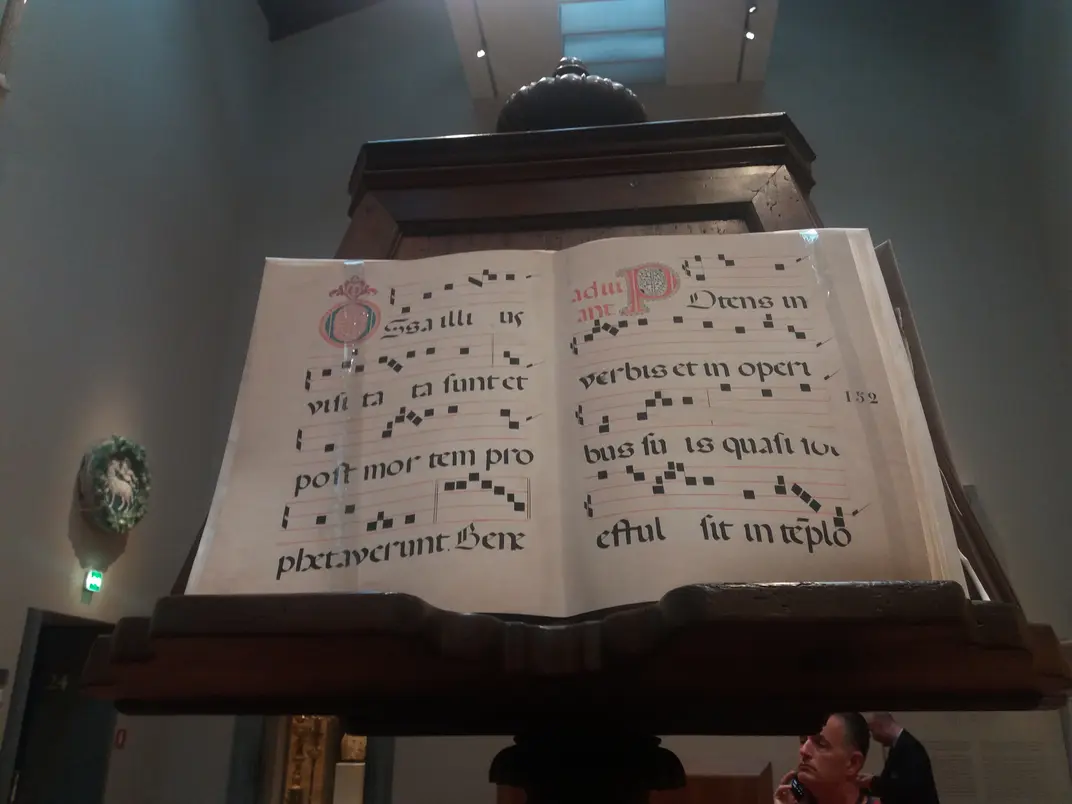 Ossa illi us
visi ta ta sunt et
post mor tem pro
phetaverunt. Bene
ad iu
ant
Potens in
verbis et in operi
152
bus su is quasi
efful sit in tēplo